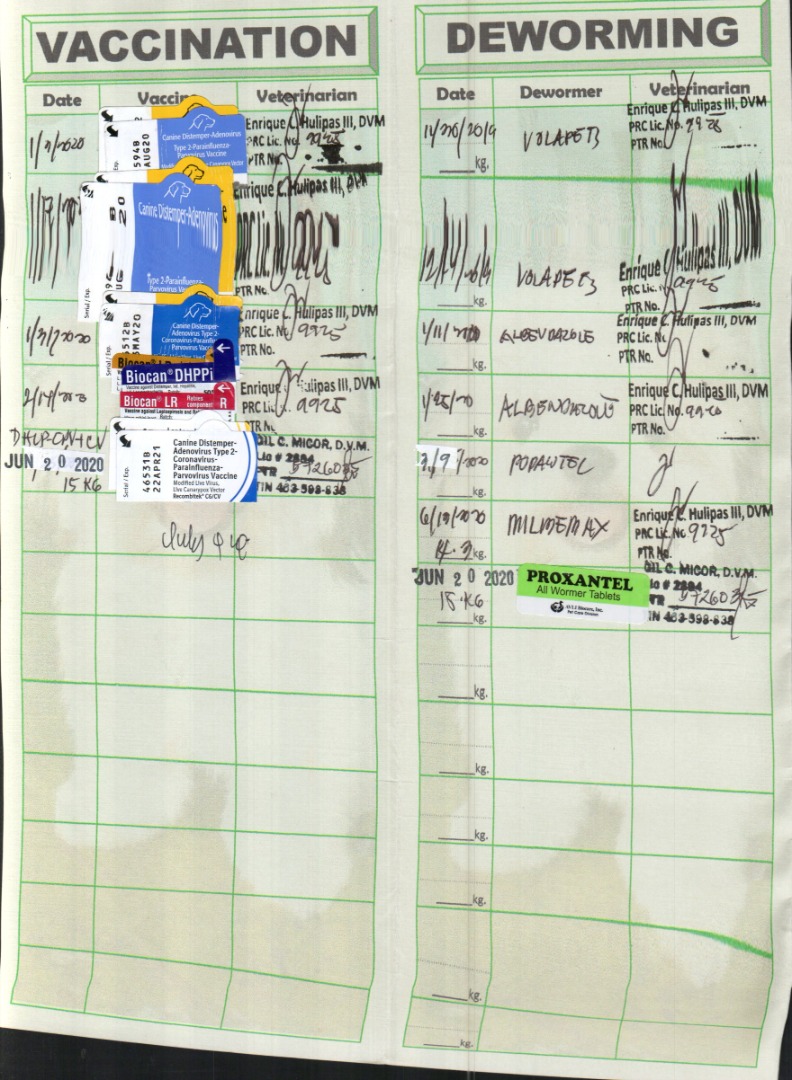 VACCINATION
Date Vaccine Veterinarian
1/3/2020
594B
AUG20
Canine Distemper-Adenovirus
Type 2-Parainfluenza-
Parvovirus Vaccine
Enrique C. Hulipas III, DVM
PRC Lic. No. 9925
PTR No.
Serial / Exp.
Canine Distemper-Adenovirus
Type 2-Parainfluenza-
Parvovirus Vaccine
Enrique C. Hulipas III, DVM
PRC Lic. No.
PTR No.
1/31/2020
512B
MAY20
Canine Distemper-
Adenovirus Type 2-
Coronavirus-Parainflu
Enrique C. Hulipas III, DVM
PRC Lic. No. 9925
PTR No.
Biocan® DHPPi
Biocan® LR R
Enrique C. Hulipas III, DVM
PRC Lic. No. 9925
PTR No.
JUN 20 2020
15 KG
Serial / Exp.
46531B
22APR21
Canine Distemper-
Adenovirus Type 2-
Coronavirus-
Parainfluenza-
Parvovirus Vaccine
Modified Live Virus,
Live Canarypox Vector
Recombitek® C6/CV
GIL C. MICOR, D.V.M.
Lic # 2884
PTR
TIN 463-598-838
July
DEWORMING
Date Dewomer Veterinarian
kg.
VOLAPETS
Enrique C. Hulipas III, DVM
PRC Lic. No. 9925
PTR No.
kg.
VOLAPETS
Enrique C. Hulipas III, DVM
PRC Lic. No. 9925
PTR No.
1/11/2020
kg.
ALBENDAZOLE
Enrique C. Hulipas III, DVM
PRC Lic. No. 9925
PTR No.
1/25/20
kg.
ALBENDAZOLE
Enrique C. Hulipas III, DVM
PRC Lic. No. 9925
PTR No.
kg.
6/13/2020
14.3 kg.
MILBEMAX
Enrique C. Hulipas III, DVM
PRC Lic. No. 9925
PTR No.
JUN 20 2020
15 KG
kg.
PROXANTEL
All Wormer Tablets
GIL C. MICOR, D.V.M.
Lic # 2884
PTR
TIN 463-598-838
kg.
kg.
kg.
kg.
kg.
kg.